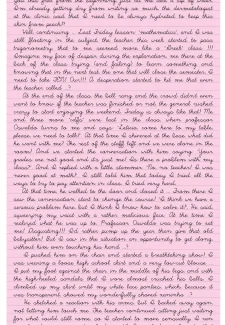 you that
I'm already getting dizzy from sending so much, the dermatologist
at the clinic said that I need to be always hydrated to keep this
skin fresh, see?!
Well continuing... Last Friday lesson 'mathematics', and I was
still floating in the subject, the teacher this week started to pass
trigonometry that to me seemed more like a 'Greek' class !!!
Imagine my face of despair during the explanation, was there at the
back of the class trying (and failing) to learn something and
knowing that in the next test the one that will close the semester, I
need to take TEN! Own!!! A desperation started to hit me that even
the teacher called...?
At the end of the class the bell rang and the crowd didn't even
want to know if the teacher was finished or not, the general rushed
crazy to start enjoying the weekend, Friday is always like that! Me
and three more 'old' were last in the class, when professor
Oswaldo turns to me and says: 'Leticia come here to my table,
please, we need to talk!' At that time I shivered at the base, what did
he want with me? The rest of the staff left and we were alone in the
room! And we started the conversation with him saying: 'Your
grades are not good and it's just me! Is there a problem with my
class?' And I replied with a little stammer: 'No, no teacher! I was
never good at math!'. I still told him that today I tried all the
ways to try to pay attention in class, I tried very hard...
At that time he walked to the door and closed it... From there I
saw the conversation start to change the course! 'I think we have a
serious problem here, but I think I know how to solve it!' He said,
squeezing my waist with a rather malicious face. At the time I
realized what he was up to, Professor Oswaldo was trying to eat
me! Disgusting!!! I'd rather jump up the year than give that old
babysitter! But I saw in the situation an opportunity to get along,
without him even touching his hand...?
I pushed him on the chair and started a breathtaking show! I
was wearing a loose high school shirt and a very low-cut blouse...
I put my foot against the chair, in the middle of his legs, and with
the high-heeled sandals that I wore almost crushed his balls, I
climbed up my skirt until my white lace panties, which because it
was transparent showed my wonderfully shaved nympha...?
He sketched a reaction with his arms, but I backed away again,
not letting him touch me. The teacher continued sitting just waiting
for what would still come, so I started to move sensually, I ran